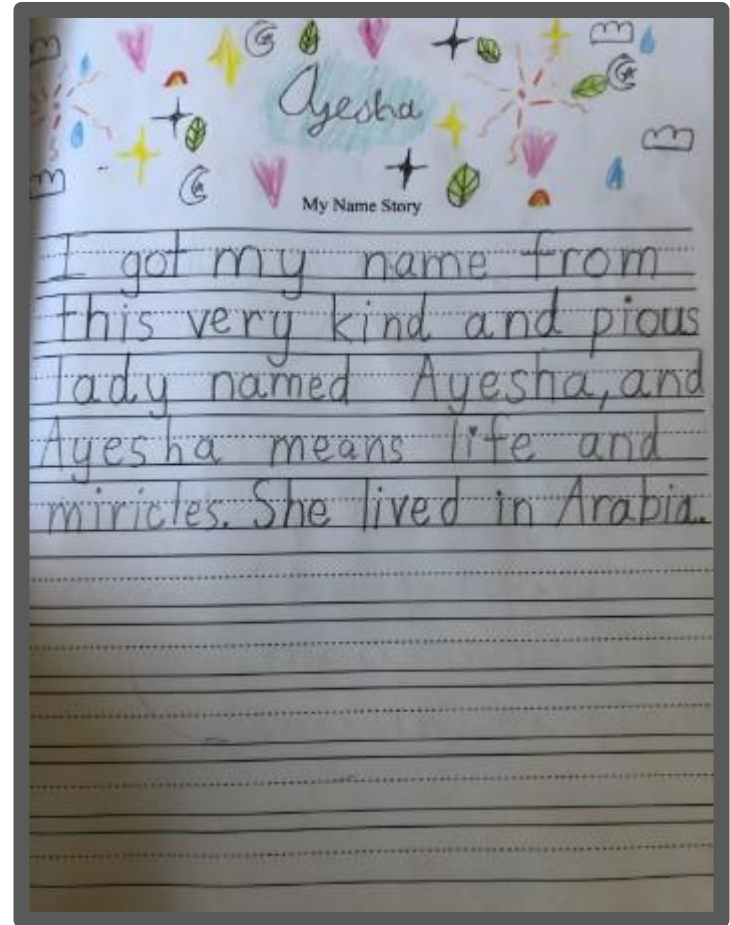 Ayesha
My Name Story
I got my name from
this very kind and pious
lady named Ayesha, and
Ayesha means life and
miricles. She lived in Arabia.